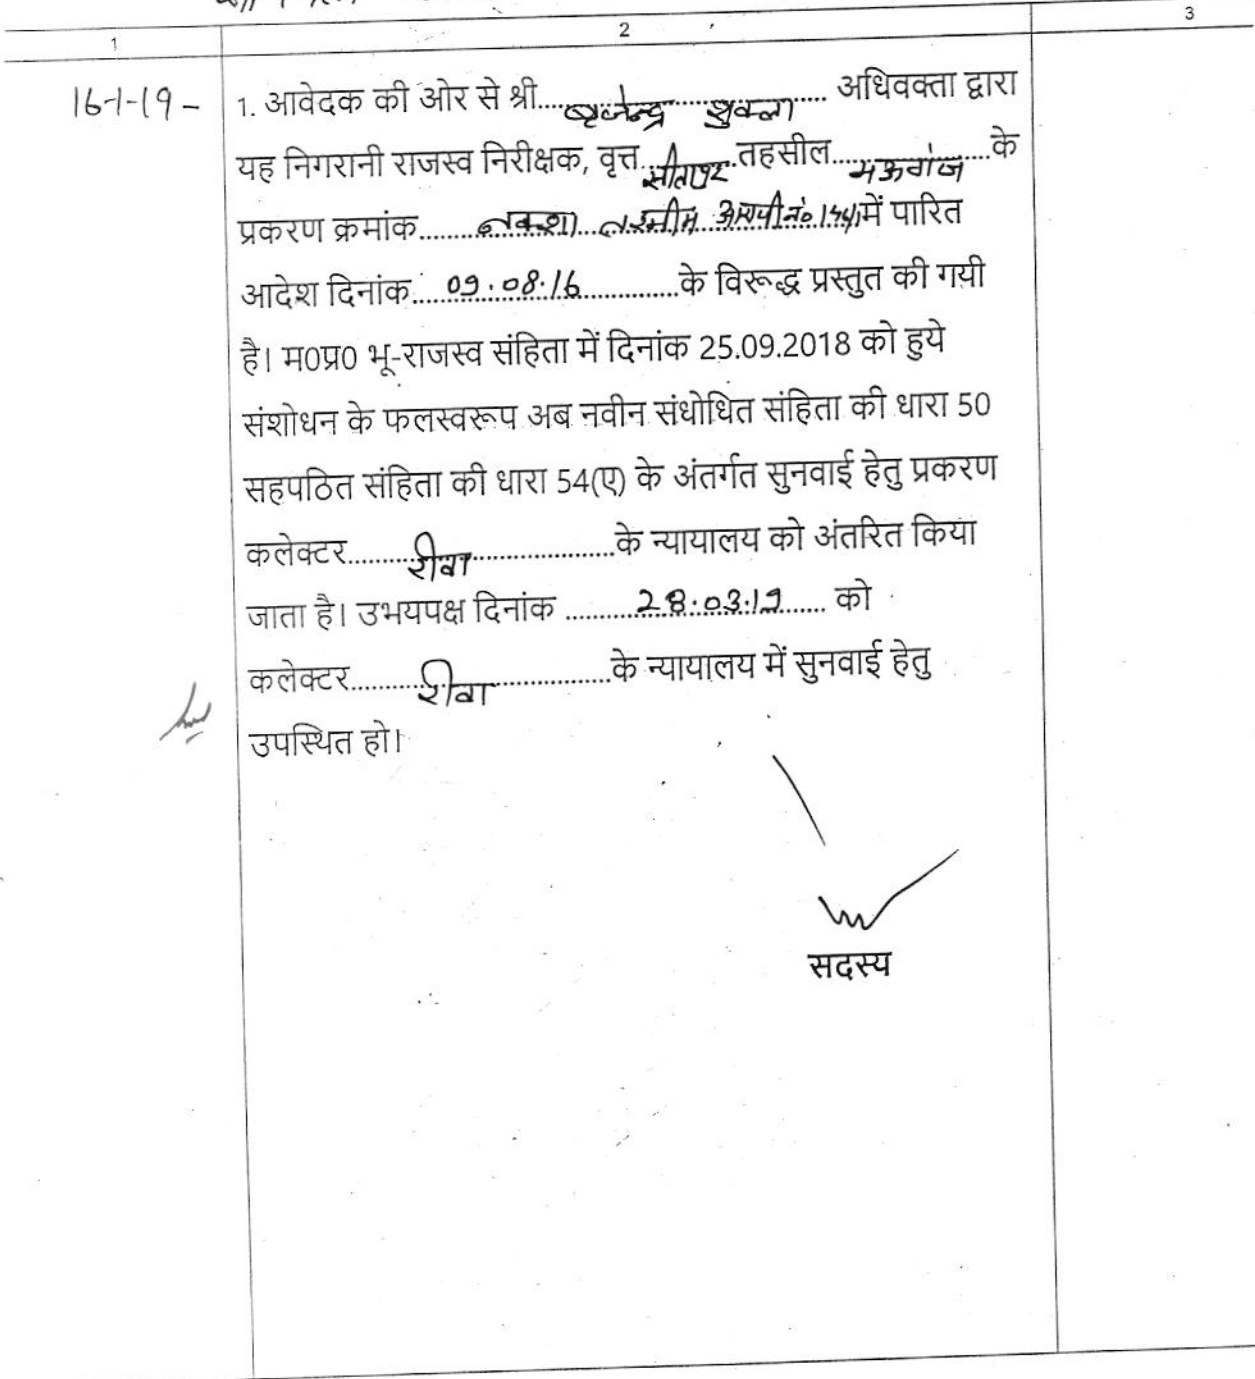 1
2
3
16-1-19 -
1. आवेदक की ओर से श्री.....बृजेन्द्र शुक्ला..... अधिवक्ता द्वारा
यह निगरानी राजस्व निरीक्षक, वृत्त..सीतापुर..तहसील.....मऊगंज.....के
प्रकरण क्रमांक.....नक्शा तरमीम.....में पारित
आदेश दिनांक.....09.08.16.....के विरूद्ध प्रस्तुत की गयी
है। म0प्र0 भू-राजस्व संहिता में दिनांक 25.09.2018 को हुये
संशोधन के फलस्वरूप अब नवीन संधोधित संहिता की धारा 50
सहपठित संहिता की धारा 54(ए) के अंतर्गत सुनवाई हेतु प्रकरण
कलेक्टर.....रीवा.....के न्यायालय को अंतरित किया
जाता है। उभयपक्ष दिनांक .....28.03.19..... को
कलेक्टर.....रीवा.....के न्यायालय में सुनवाई हेतु
उपस्थित हो।
सदस्य